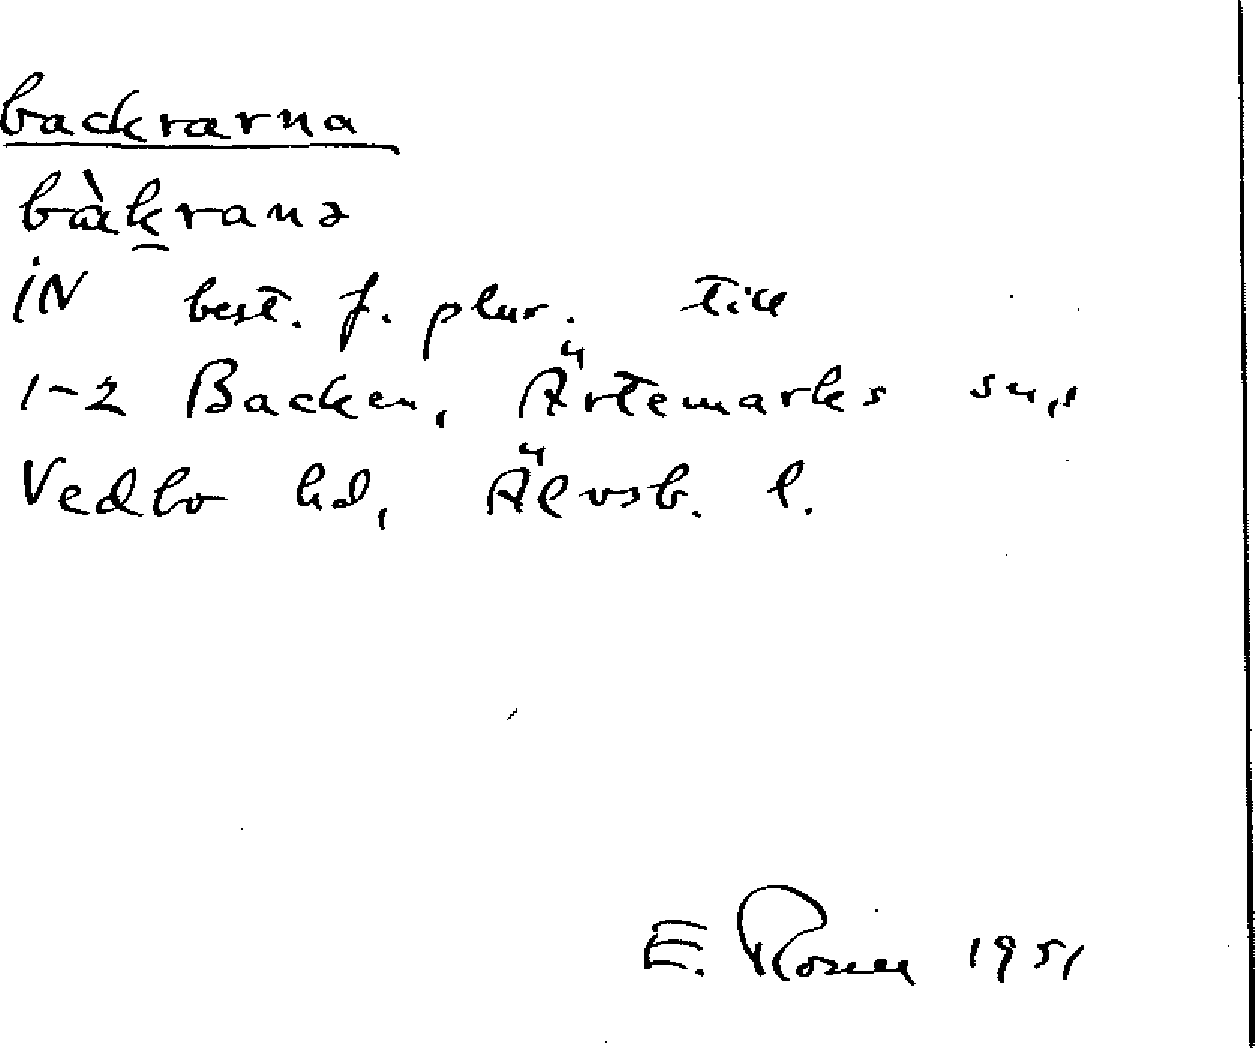 backrarna
bàk̲rana
IN best. f. plur. till
1-2 Backen, Ärtemarks sn,
Vedbo hd, Älvsb. l.
E. Rosén 1951